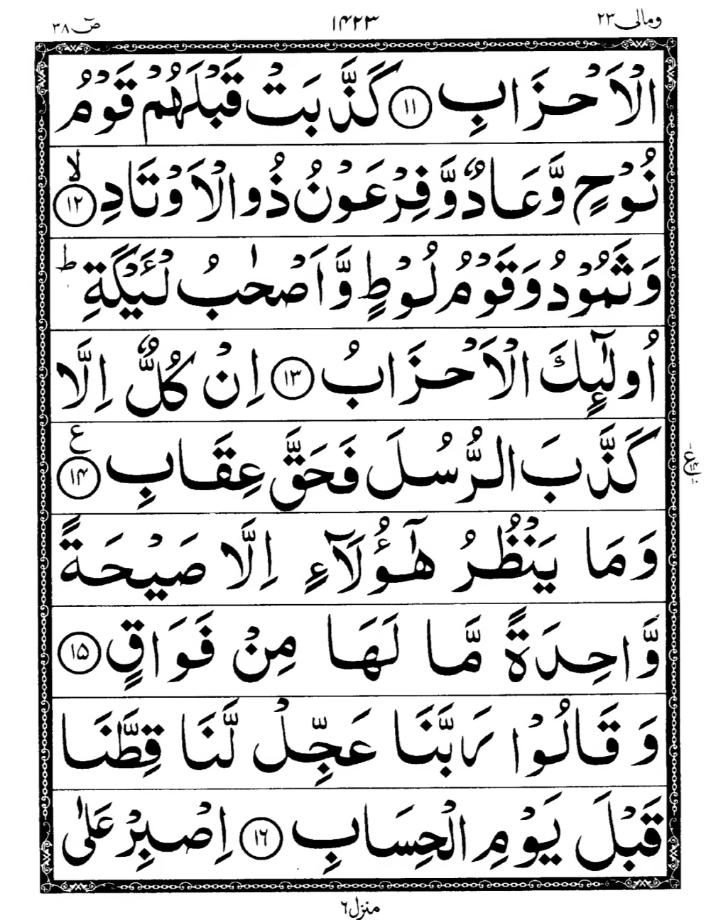 ومالی ۲۳
۱۴۲۳
صٓ ۳۸
الْاَحْزَابِ ⑪ كَذَّبَتْ قَبْلَهُمْ قَوْمُ
نُوْحٍ وَّعَادٌ وَّفِرْعَوْنُ ذُو الْاَوْتَادِ ۙ⑫
وَثَمُوْدُ وَقَوْمُ لُوْطٍ وَّاَصْحٰبُ لْـَٔيْكَةِ ؕ
اُولٰٓئِكَ الْاَحْزَابُ ⑬ اِنْ كُلٌّ اِلَّا
كَذَّبَ الرُّسُلَ فَحَقَّ عِقَابِ ⑭ ع
ع ۱۴ ۱۰
وَمَا يَنْظُرُ هٰٓؤُلَآءِ اِلَّا صَيْحَةً
وَّاحِدَةً مَّا لَهَا مِنْ فَوَاقٍ ⑮
وَقَالُوْا رَبَّنَا عَجِّلْ لَّنَا قِطَّنَا
قَبْلَ يَوْمِ الْحِسَابِ ⑯ اِصْبِرْ عَلٰى
منزل ۶